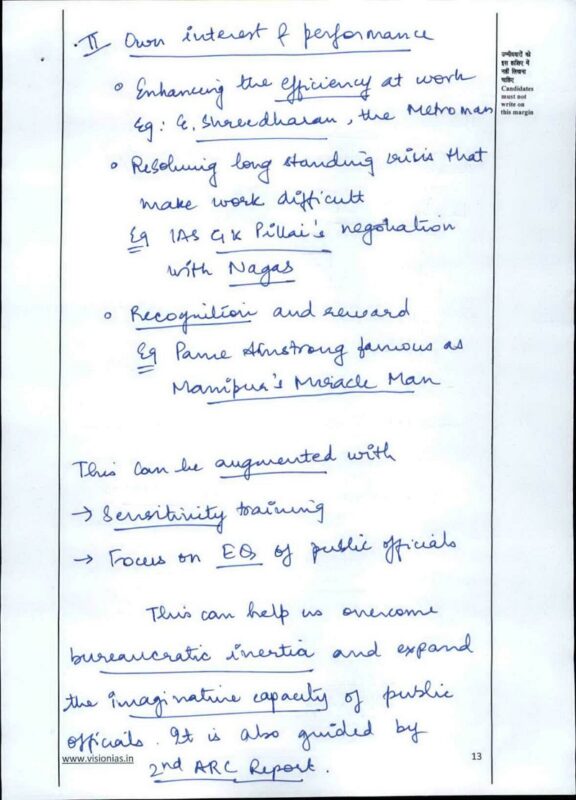 II Own interest & performance
उम्मीदवारों को
इस हाशिए में
नहीं लिखना
चाहिए
Candidates
must not
write on
this margin
° Enhancing the efficiency at work
Eg: E. Shreedharan, the Metroman
° Resolving long standing crisis that
make work difficult
Eg IAS GK Pillai's negotiation
with Nagas
° Recognition and reward
Eg Pame Armstrong famous as
Manipur's Miracle Man
This can be augmented with
→ Sensitivity training
→ Focus on EQ of public officials
This can help us overcome
bureaucratic inertia and expand
the imaginative capacity of public
officials. It is also guided by
2nd ARC Report.
www.visionias.in
13